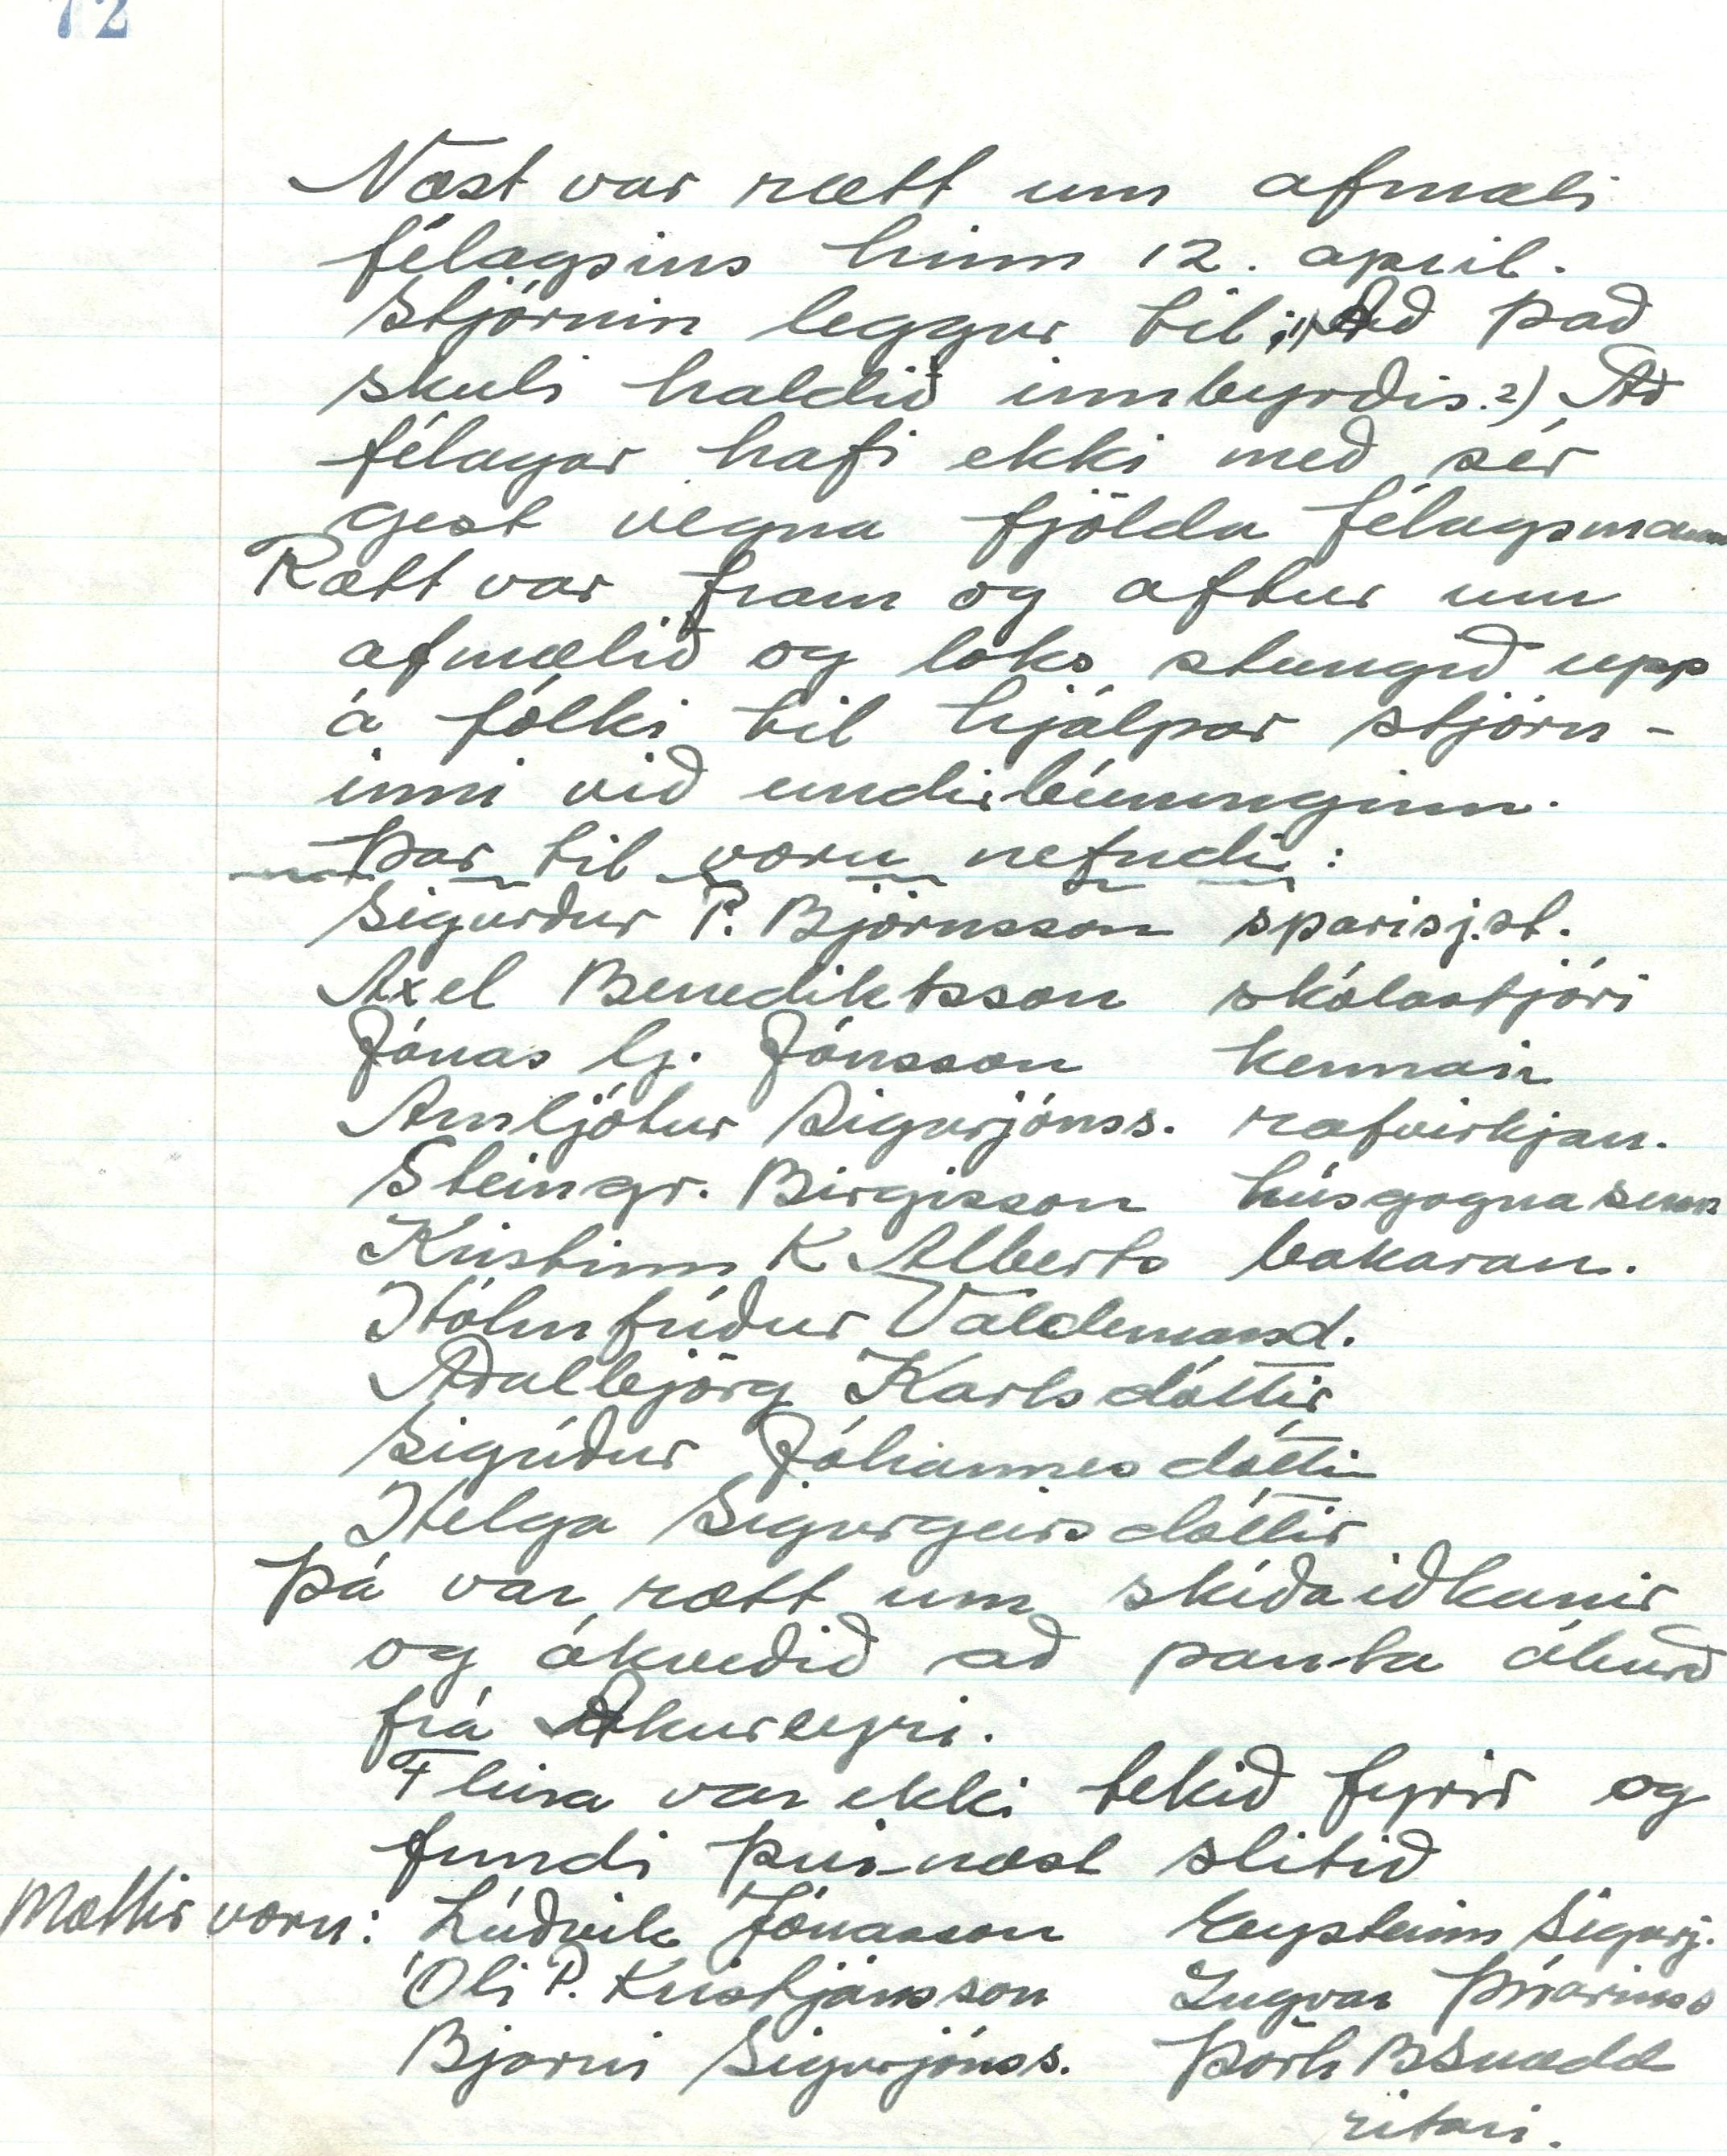 72
Næst var rætt um afmæli
félagsins hinn 12. apríl.
Stjórnin leggur til; 1) Að það
skuli haldið innbyrðis. 2) Að
félagar hafi ekki með sér
gest vegna fjölda félagsmanna
Rætt var fram og aftur um
afmælið og loks stungið upp
á fólki til hjálpar stjórn-
inni við undirbúninginn.
Þar til voru nefndir:
Sigurður P. Björnsson sparisj.st.
Axel Benediktsson skólastjóri
Jónas G. Jónsson kennari
Arnljótur Sigurjónss. rafvirkjam.
Steingr. Birgisson húsgagnasm
Kristinn K Alberts bakaram.
Hólmfríður Valdemarsd.
Aðalbjörg Karlsdóttir
Sigríður Jóhannesdóttir
Helga Sigurgeirsdóttir
Þá var rætt um skíðaiðkanir
og ákveðið að panta áburð
frá Akureyri.
Fleira var ekki tekið fyrir og
fundi því-næst slitið
Mættir voru: Lúðvík Jónasson Eysteinn Sigurj.
Óli P. Kristjánsson Ingvar Þórarinss
Bjarni Sigurjónss. Þórh B Snædal
ritari.